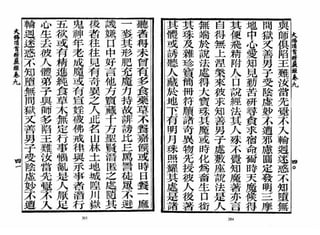 與師俱陷王難汝當先覺不入輪迴迷惑不知墮無
間獄又善男子受陰虛妙不遭邪慮圓定發明三摩
地中心愛知見勤苦研尋貪求宿命爾時天魔候得
其便飛精附人口說經法其人殊不覺知魔著亦言
自得無上涅槃來彼求知善男子處敷座說法是人
無端於說法處得大寶珠其魔或時化為畜生口銜
其珠及雜珍寶簡冊符牘諸奇異物先授彼人後著
其體或誘聽人藏於地下有明月珠照耀其處是諸
大佛頂首楞嚴經卷九
聽者得未曾有多食藥草不餐嘉饌或時日餐一麻
一麥其形肥充魔力持故誹謗比丘罵詈徒眾不避
譏嫌口中好言他方寶藏十方聖賢潛匿之處隨其
後者往往見有奇異之人此名山林土地城隍川嶽
鬼神年老成魔或有宣婬破佛戒律與承事者潛行
五欲或有精進純食草木無定行事惱亂是人厭足
心生去彼人體弟子與師多陷王難汝當先覺不入
輪迴迷惑不知墮無間獄又善男子受陰虛妙不遭
大佛頂首楞嚴經卷九